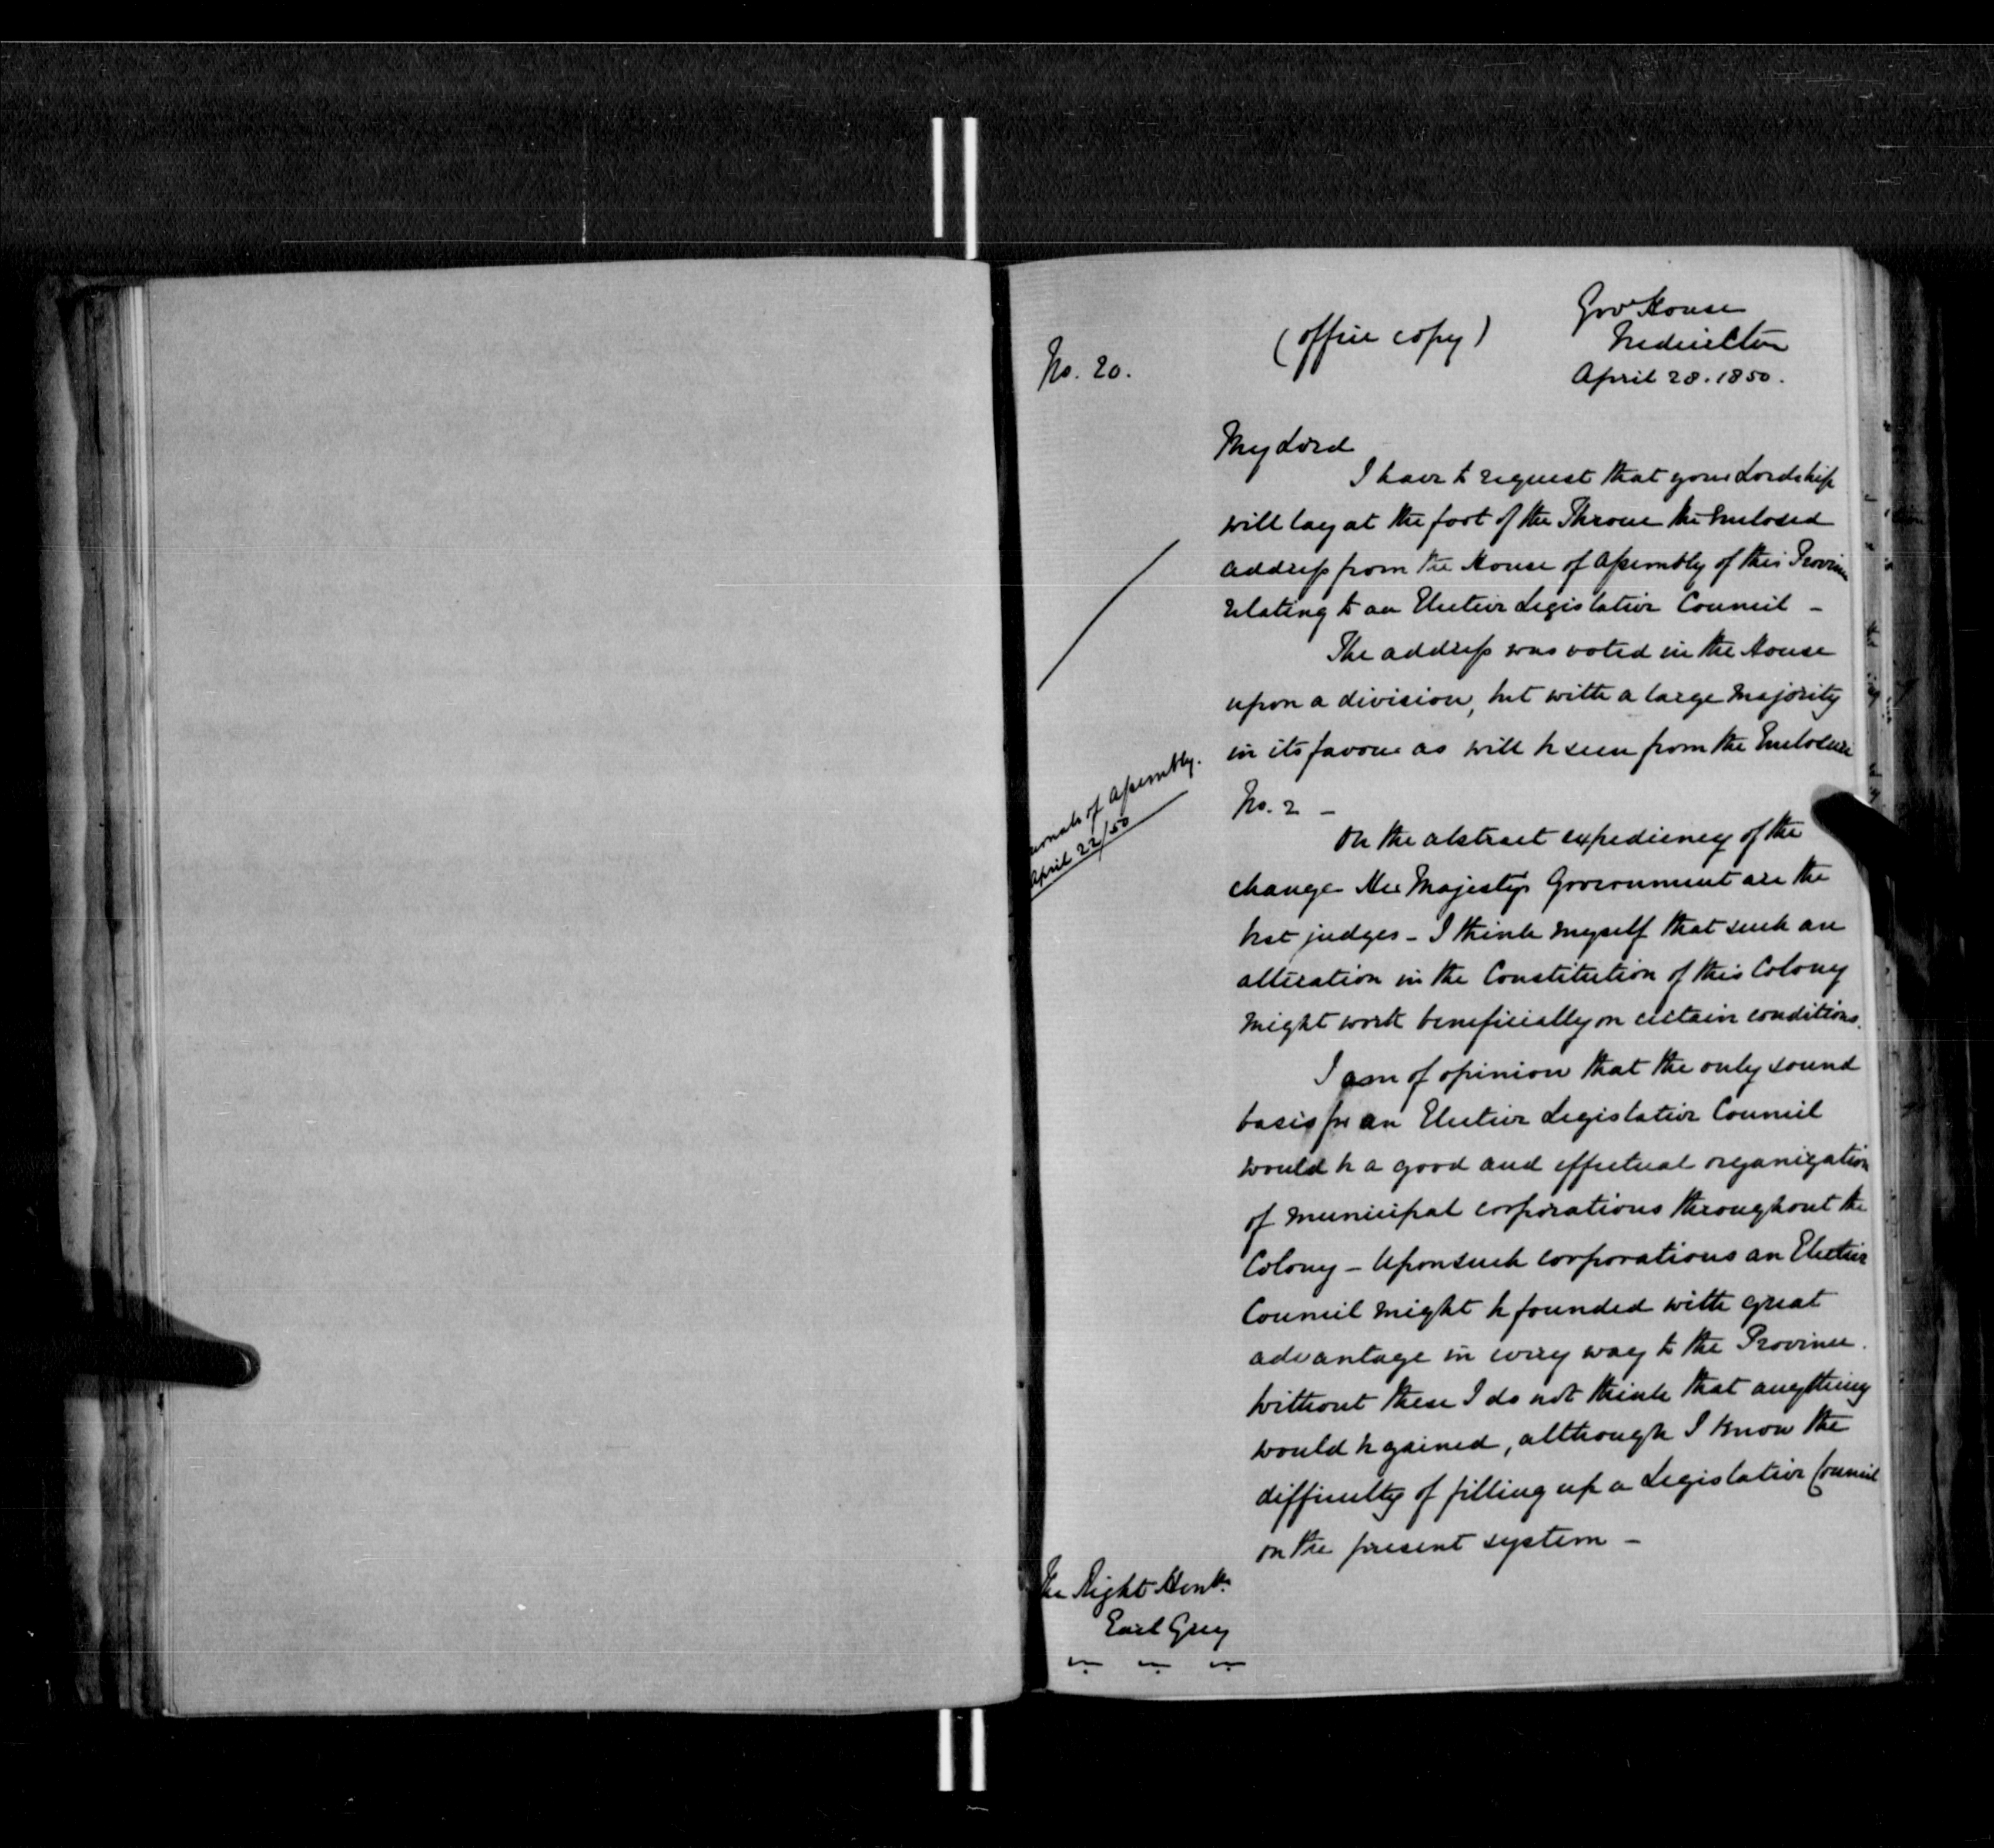 No. 20.
(office copy)
Govt House
Fredericton
April 28. 1850.
My Lord
I have to request that your Lordship
will lay at the foot of the Throne the Enclosed
address from the House of Assembly of this Province
relating to an Elective Legislative Council –
The address was voted in the House
upon a division, but with a large Majority
in its favour as will be seen from the Enclosure
No. 2 –
Journals of Assembly.
April 22/50
On the abstract expediency of the
change Her Majestys Government are the
best judges – I think myself that such an
alteration in the Constitution of this Colony
Might work beneficially on certain conditions.
I am of opinion that the only sound
basis for an Elective Legislative Council
would be a good and effectual organization
of Municipal corporations throughout the
Colony – Upon such corporations an Elective
Council might be founded with great
advantage in every way to the Province.
Without these I do not think that anything
would be gained, although I know the
difficulty of filling up a Legislative Council
on the present system –
The Right Honble
Earl Grey